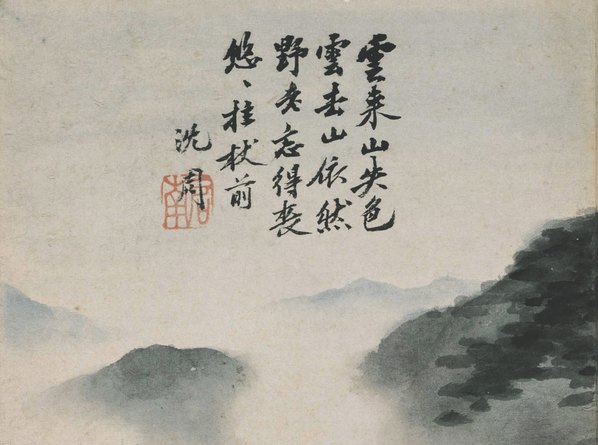 雲來山失色
雲去山依然
野老忘得喪
悠〻拄杖前
沈周
啟南